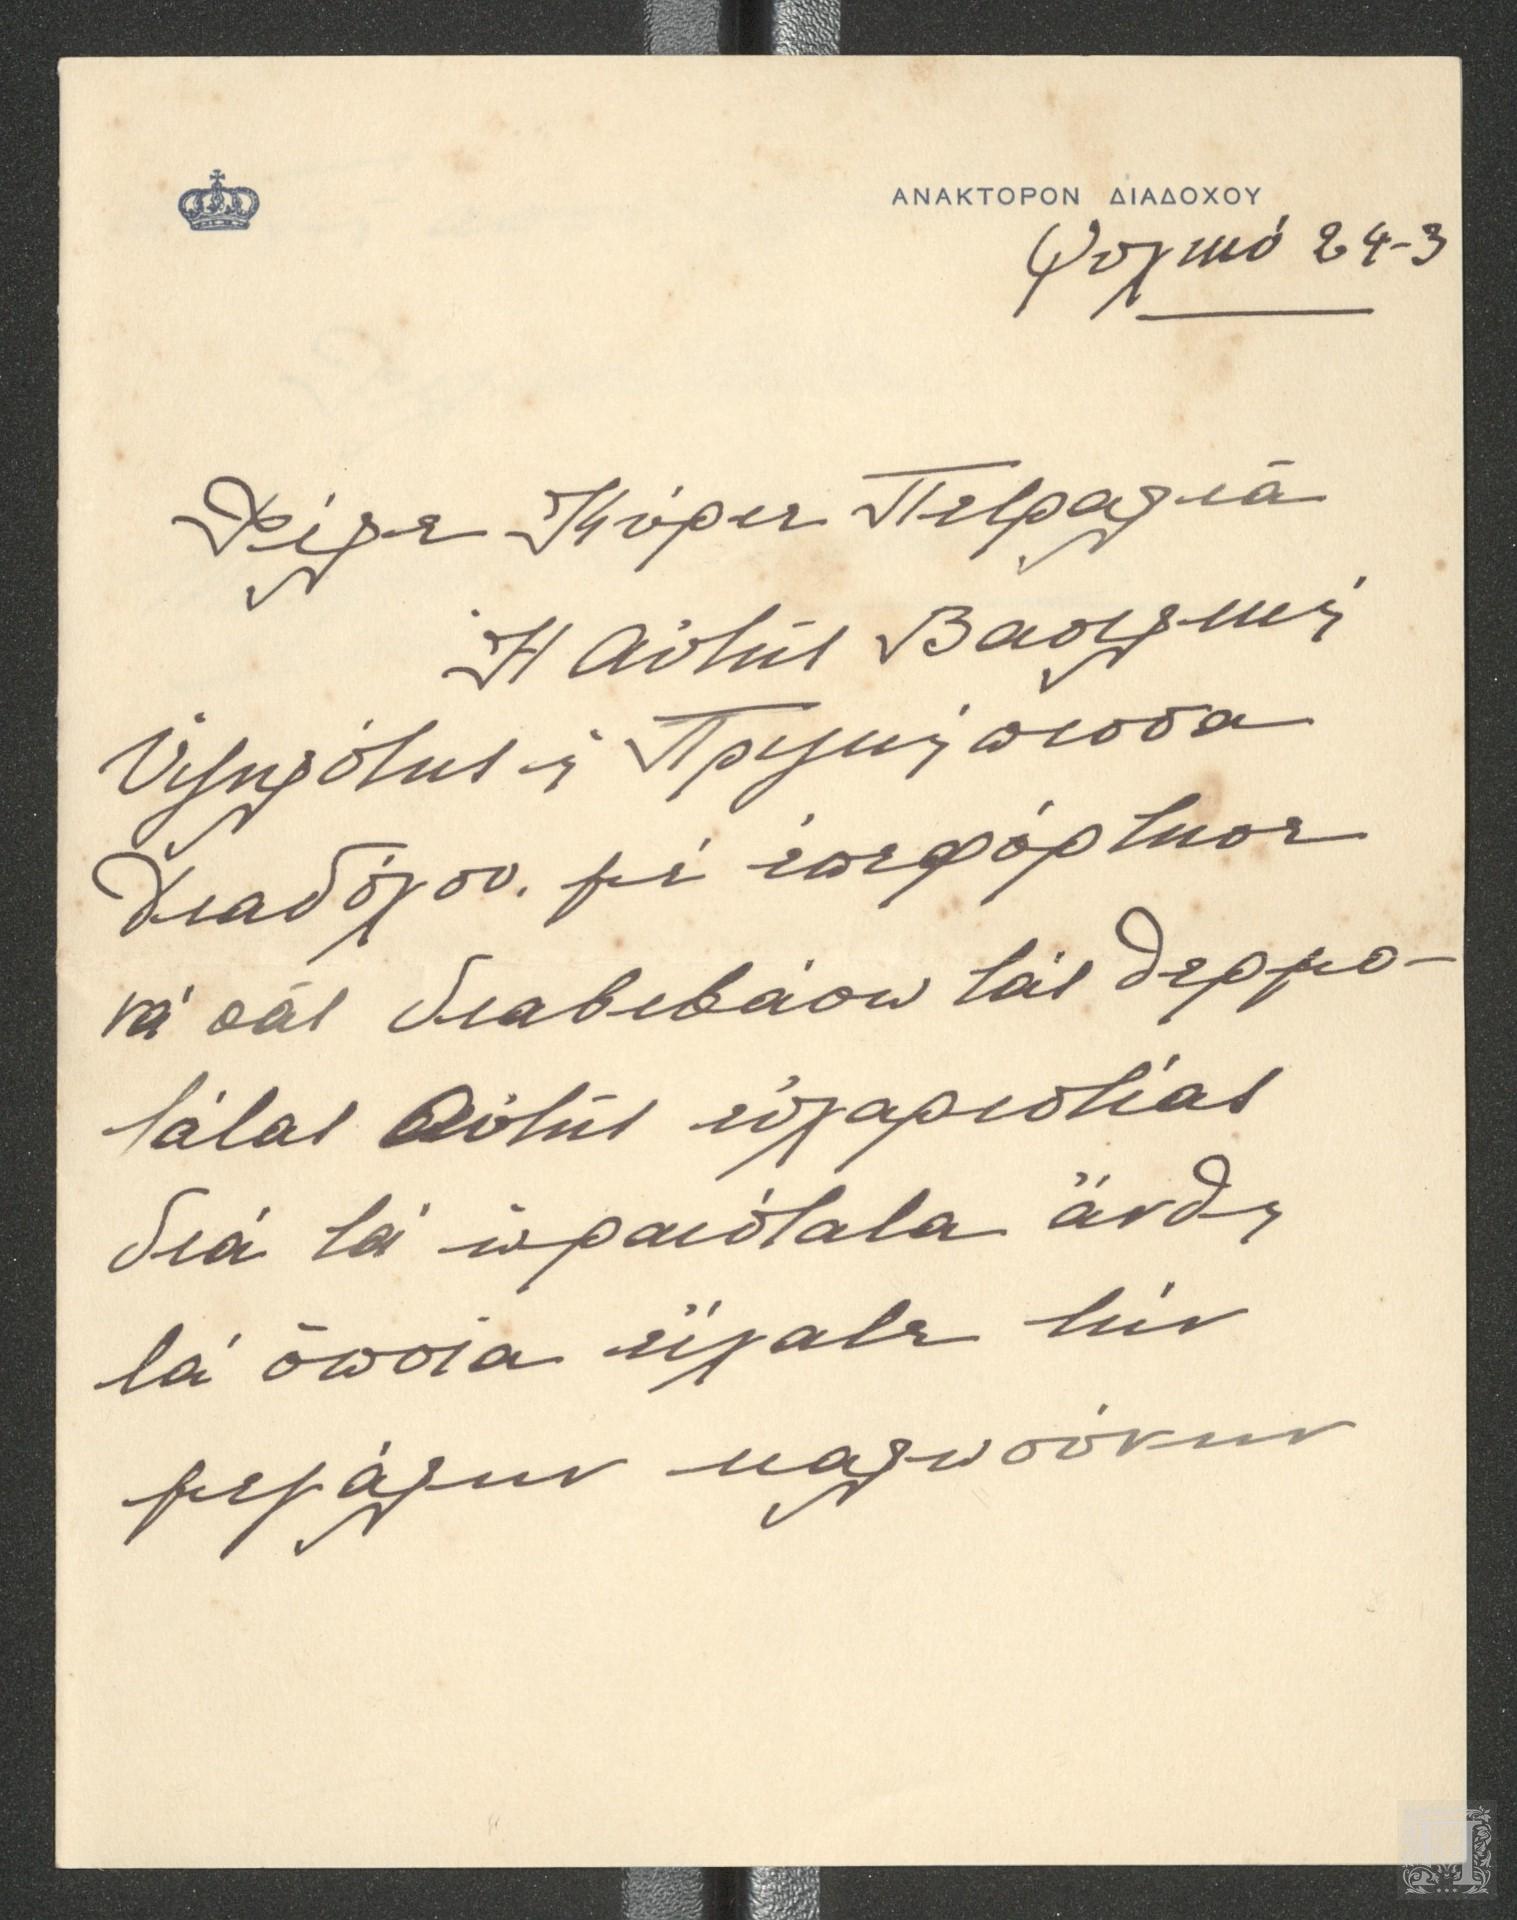 ΑΝΑΚΤΟΡΟΝ ΔΙΑΔΟΧΟΥ
Ψυχικό 24-3
Φίλε Κύριε Πετραλιᾶ
Ἡ Αὐτῆς Βασιλική
Ὑψηλότης ἡ Πριγκήπισσα
Διαδόχου. μέ ἐπεφόρτησε
νά σᾶς διαβιβάσω τάς θερμο-
τάτας Αὐτῆς εὐχαριστίας
διά τά ὡραιότατα ἄνθη
τά ὁποῖα εἴχατε τήν
μεγάλην καλωσύνην